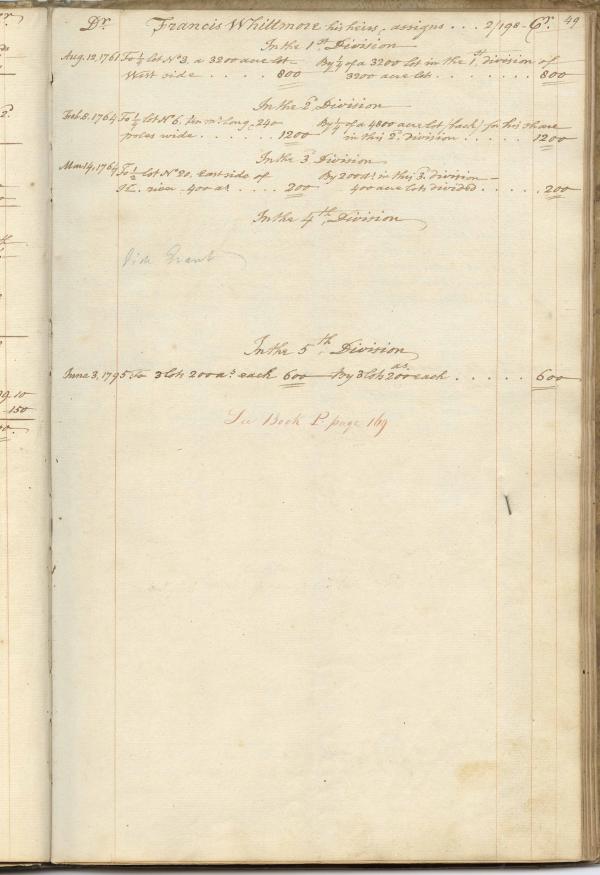 Dr. Francis Whittmore his heirs, assigns . . . 2/198 - Cr. 49
In the 1st Division
Aug. 12, 1761 To 1/4 lot No 3, a 3200 acre lot By 1/4 of a 3200 lot in the 1st division of
West side . . . . . 800 3200 acre lots . . . . . . . 800
In the 2d Division
Feb. 8. 1764 To 1/4 lot No 6. ten ms long, 240 By 1/4 of a 4800 acre lot (back) for his share
poles wide . . . . . . 1200 in this 2d. division . . . . . . 1200
In the 3d Division
Mar. 14, 1764 To 1/2 lot No 20. East side of By 200 as in this 3d. division -
K. river - 400 as. . . . . 200 400 acre lots divided . . . . . 200
In the 4th. Division
Vide Grant
In the 5th. Division
June 3, 1795 To 3 lots 200 as each 600 By 3 lots 200 as. each . . . . . . 600
See Book P. page 169